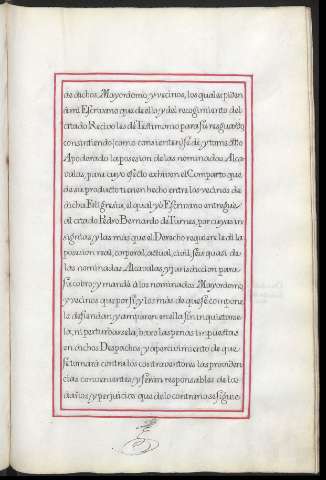 de dichos Mayordomo, y vecinos, los quales piden
à mi Escrivano que de ello, y del recogimiento del
citado Recivo les dè Testimonio para su resguardo
consintiendo, como consienten, se dè, y tome dho
Apoderado la posesion de las nominadas Alca-
valas, para cuyo efecto exhiven el Comparto que
de su producto tienen hecho entre los vecinos de
dicha Feligresia, el qual yò Escrivano entreguè
al citado Pedro Bernardo de Turnes, por cuya in-
signia, y las más que el Derecho requiere le dì la
posesion real, corporal, actual, civil, seu quasi de
las nominadas Alcavalas, y Jurisdiccion para
su cobro, y mandè à los nominados Mayordomo,
y vecinos que por sì, y los más de que se compone
le defiendan, y amparen en ella sin inquietarse-
la, ni perturbarsela, baxo las penas impuestas
en dichos Despachos, y apercivimiento de que
se tomarà contra los contraventores las providen-
cias convenientes, y seran responsables de los
daños, y perjuicios que de lo contrario se sigue-